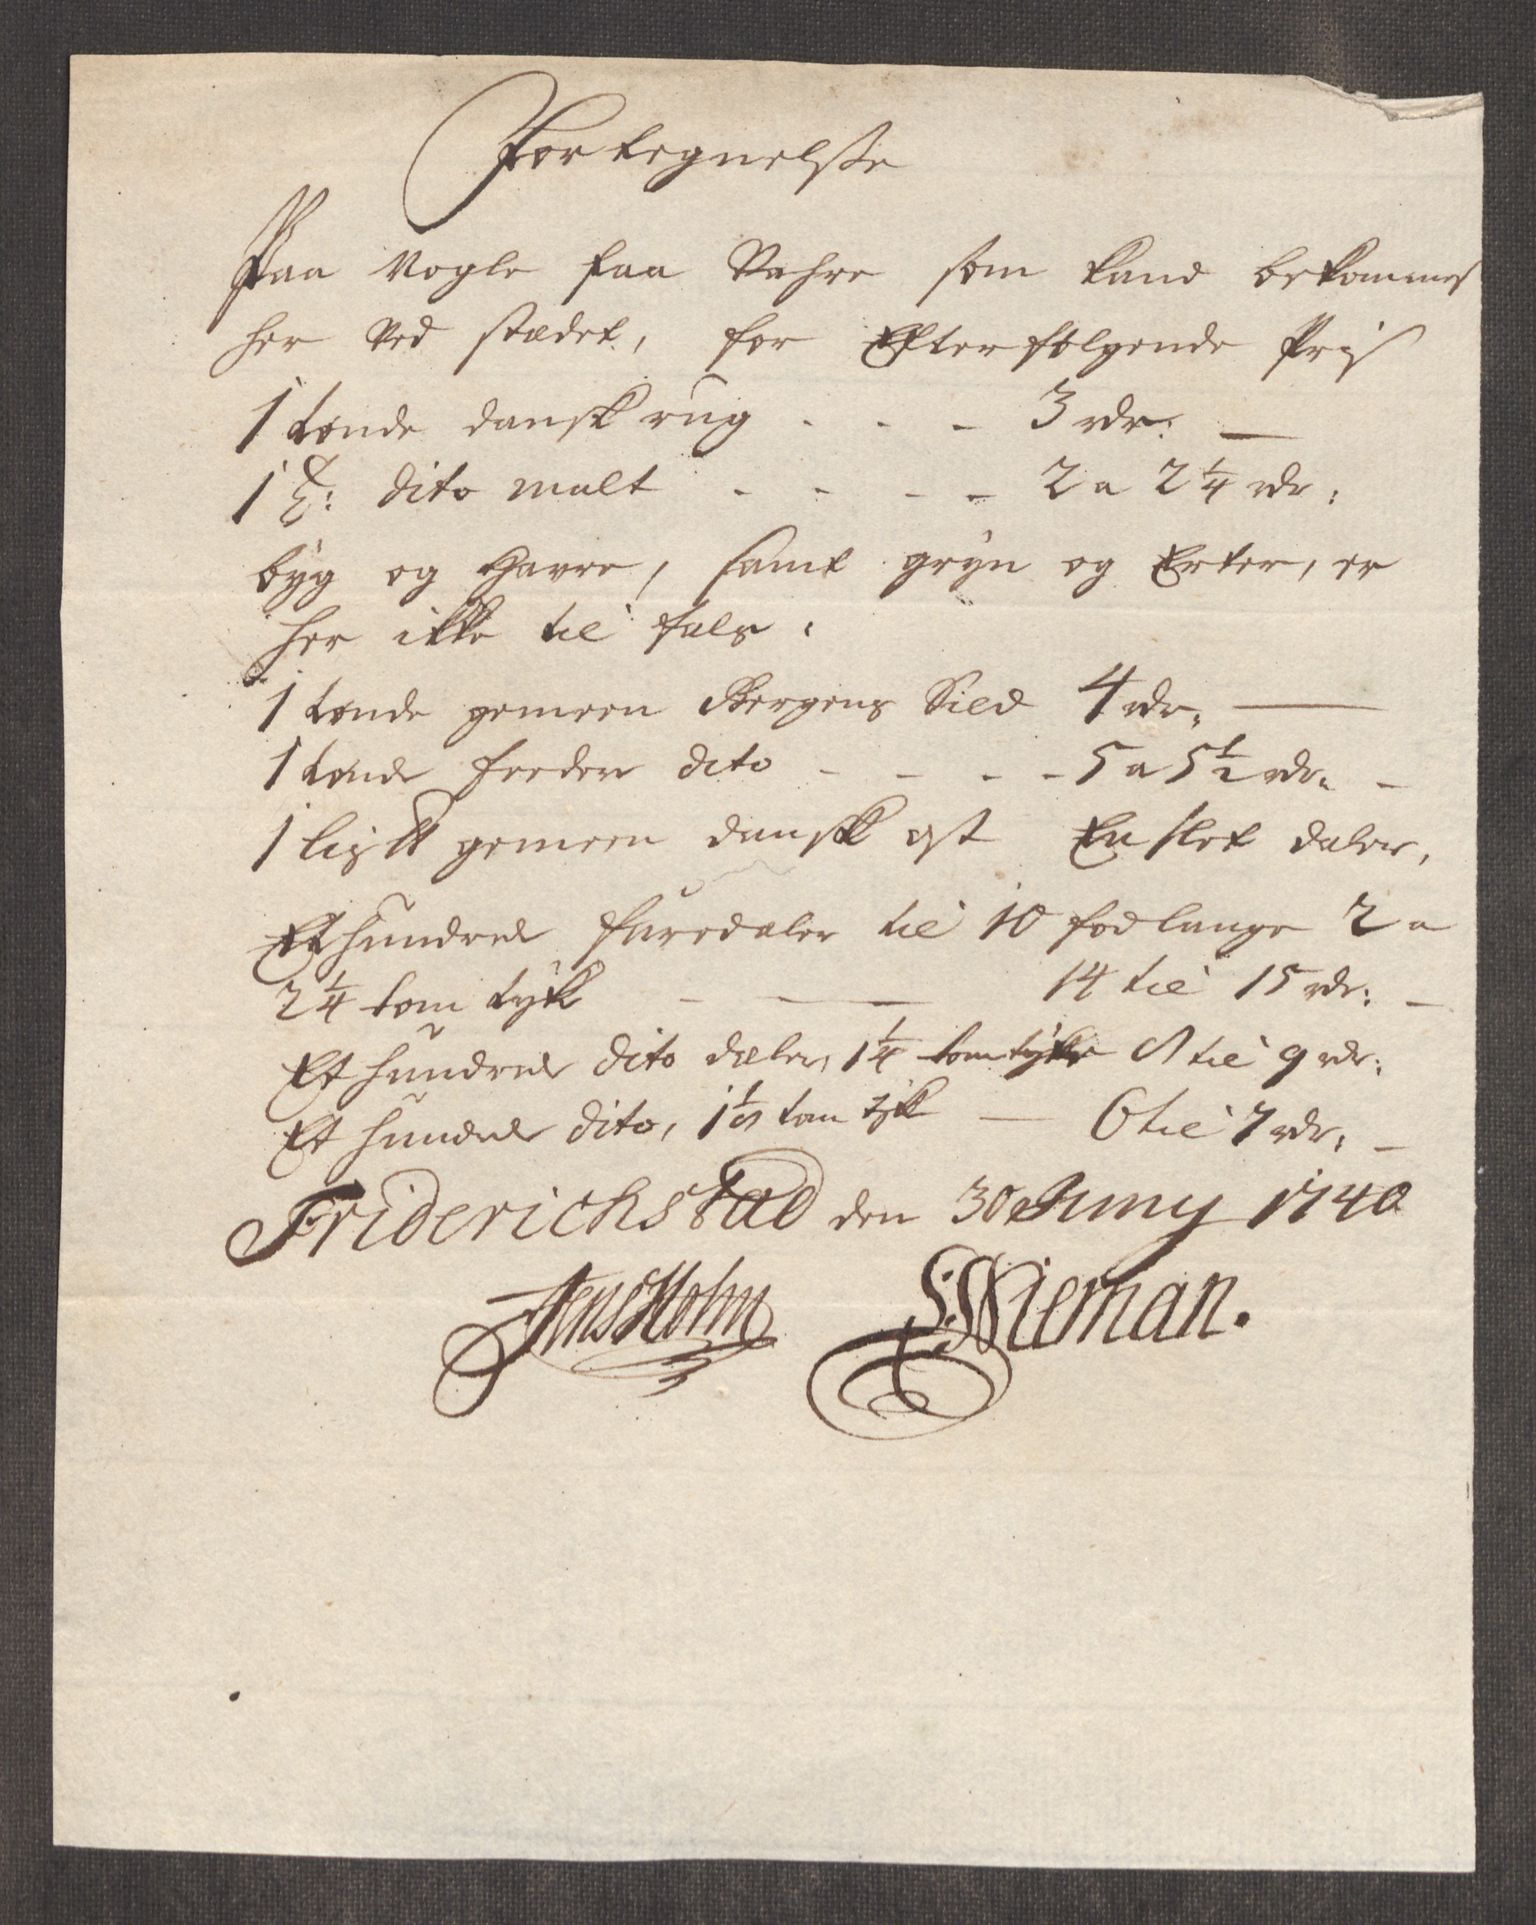 Fortegnelsse
Paa Nogle faa Vahre som kand bekommes
her Ved stædet, for Efterfølgende Prijs
1 tønde dansk rug - - - 3 rdr: —
1 t: dito malt - - - - 2 a 2 1/4 rdr:
byg og Havre, samt gryn og Erter, er
her ikke til fals:
1 tønde gemeen Bergens Sild 4 rdr: —
1 tønde feeder dito - - - - 5 a 5 1/2 rdr: -
1 lis ℔ gemeen dansk ost En slet daler,
Et hundrede furredæler til 10 fod lange 2 a
2 1/4 tom tyk - — — 14 til 15 rdr: -
Et hundrede dito dæler, 1 1/4 tom tyke 8 til 9 rdr:
Et hundrede dito, 1 1/8 tom tyk — 6 til 7 rdr: -
Friderichstad den 30 Juny 1740
Jens Holm S: Wieman.